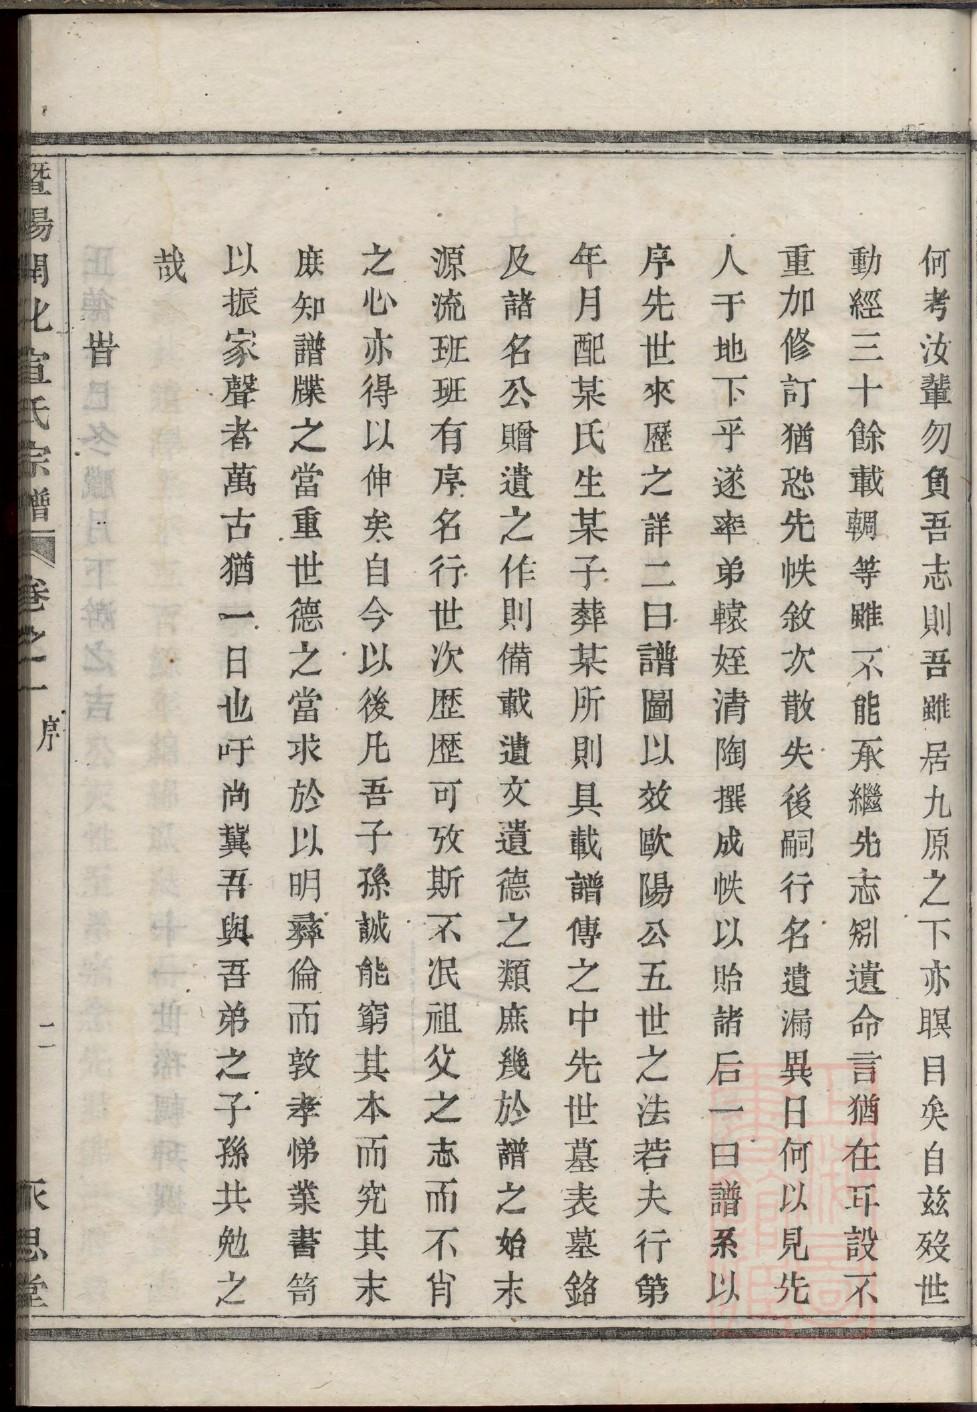 何考汝輩勿負吾志則吾雖居九原之下亦瞑目矣自玆歿世
動經三十餘載輖等雖不能承繼先志矧遺命言猶在耳設不
重加修訂猶恐先帙敘次散失後嗣行名遺漏異日何以見先
人于地下乎遂率弟轅姪清陶撰成帙以貽諸后一曰譜系以
序先世來歷之詳二曰譜圖以效歐陽公五世之法若夫行第
年月配某氏生某子葬某所則具載譜傳之中先世墓表墓銘
及諸名公贈遺之作則備載遺文遺德之類庶幾於譜之始末
源流班班有序名行世次歷歷可攷斯不冺祖父之志而不肖
之心亦得以伸矣自今以後凡吾子孫誠能窮其本而究其末
庶知譜牒之當重世德之當求於以明彝倫而敦孝悌業書笥
以振家聲者萬古猶一日也吁尚冀吾與吾弟之子孫共勉之
哉
旹
暨陽開化宣氏宗譜 卷之一 序 二 永思堂